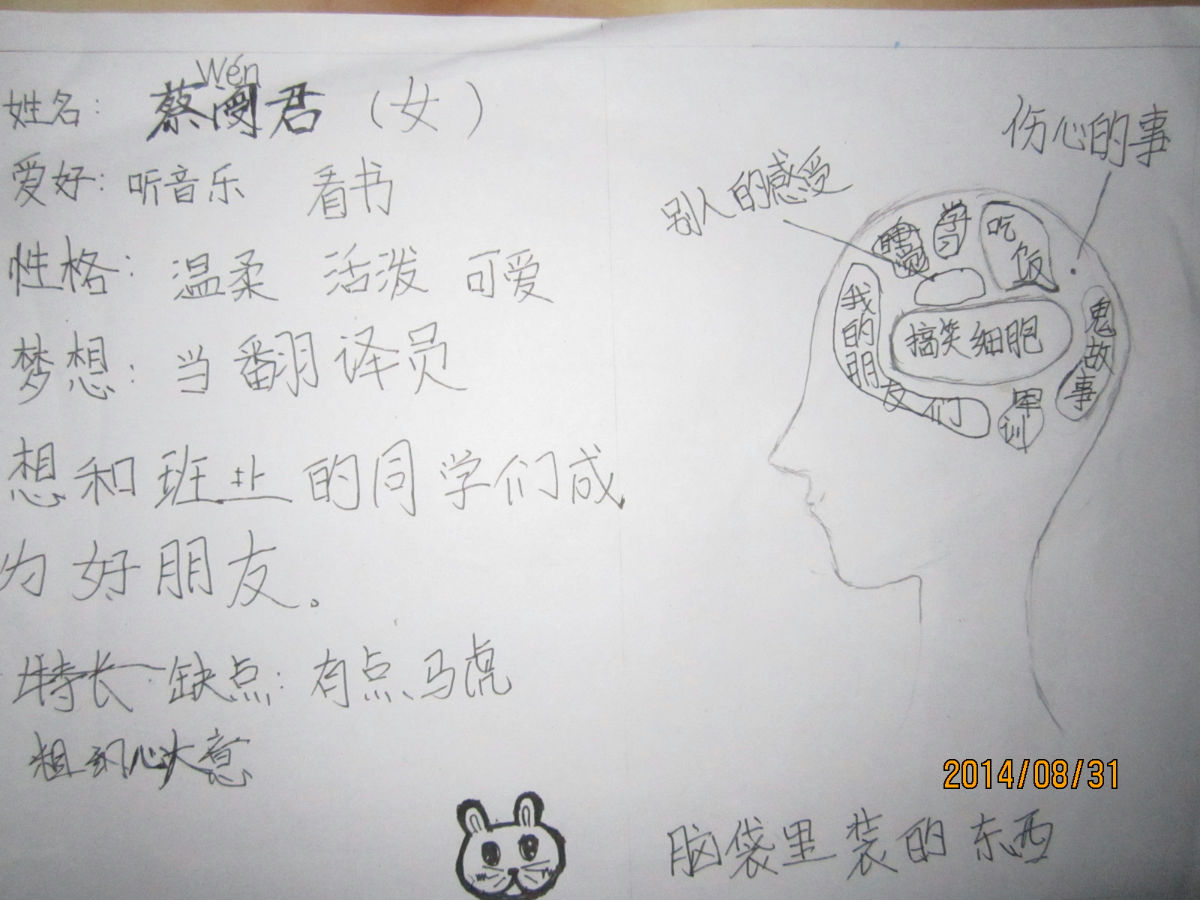 Wén
姓名：蔡阌君（女）
爱好：听音乐 看书
性格：温柔 活泼 可爱
梦想：当翻译员
想和班上的同学们成
为好朋友。
特长 缺点：有点马虎
粗心大意
伤心的事
别人的感受
睡觉
学习
吃饭
我的朋友们
搞笑细胞
鬼故事
军训
2014/08/31
脑袋里装的东西